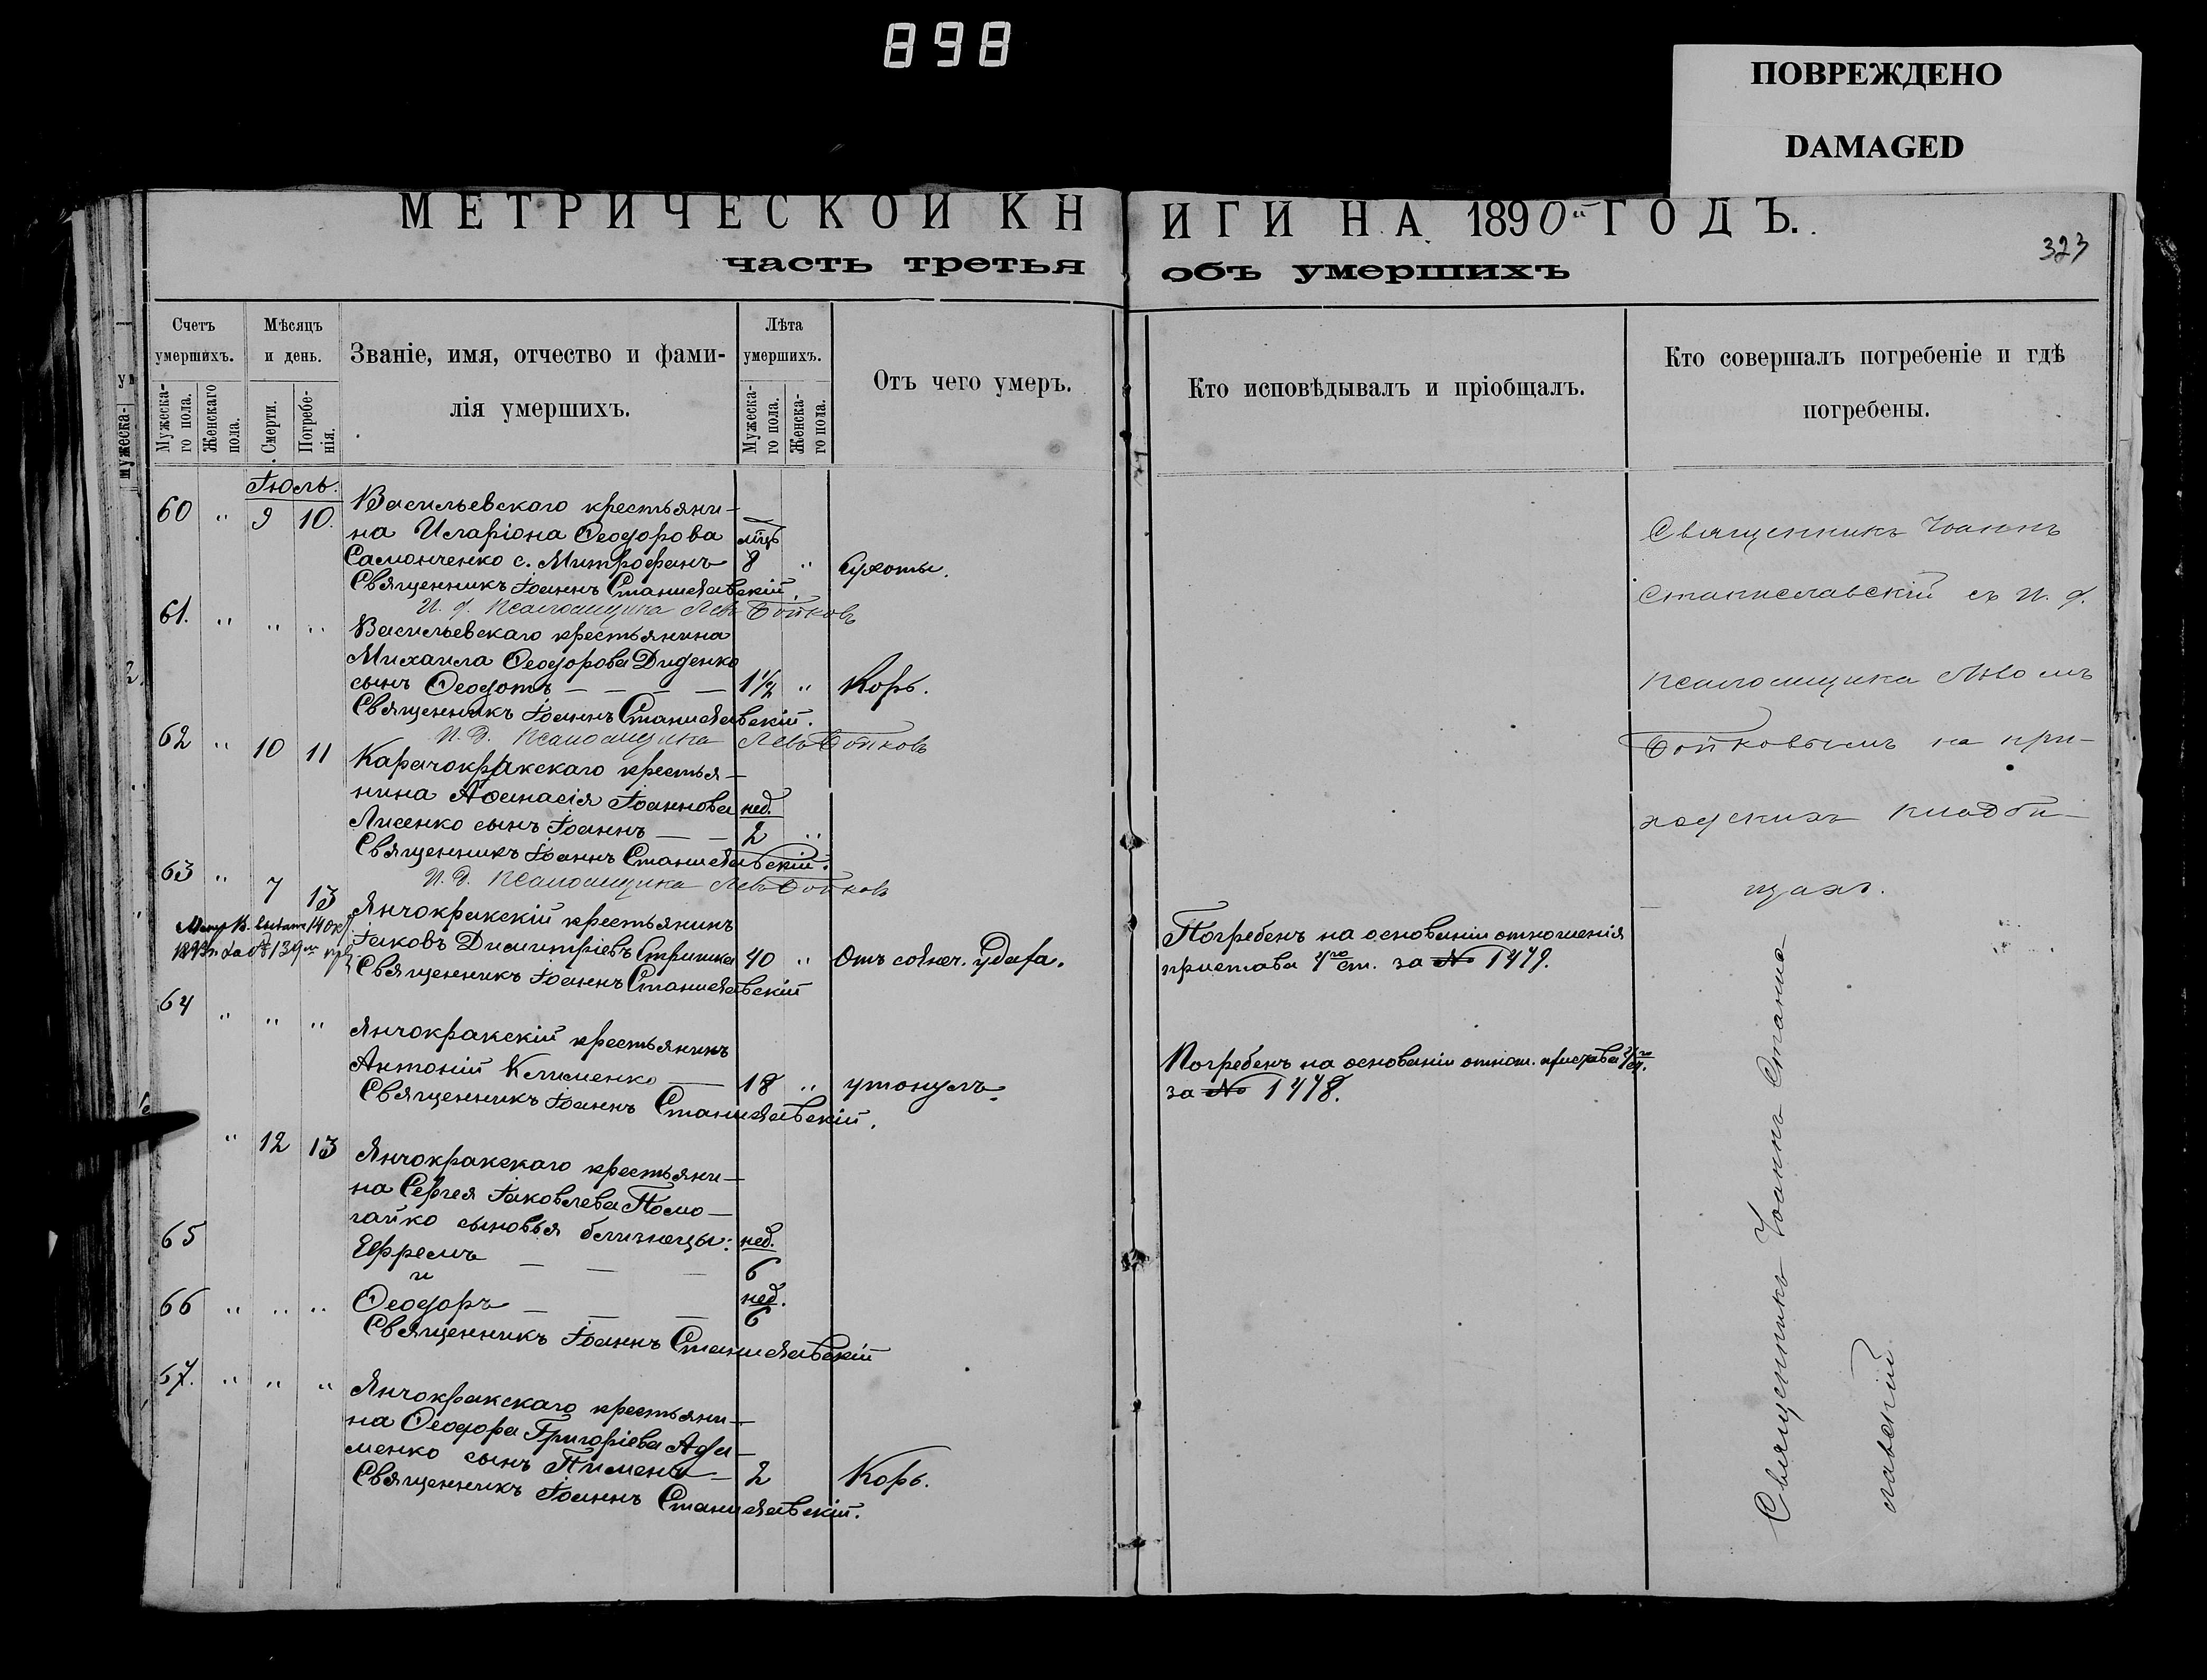 898
ПОВРЕЖДЕНО
DAMAGED
МЕТРИЧЕСКОЙ КНИГИ НА 1890й ГОДЪ.
часть третья объ умершихъ
323
Счетъ умершихъ.
Мужеска-го пола.
Женскаго пола.
Мѣсяцъ и день.
Смерти.
Погребе-нія.
Званіе, имя, отчество и фами-
лія умершихъ.
Лѣта умершихъ.
Мужеска-го пола.
Женска-го пола.
Отъ чего умеръ.
Кто исповѣдывалъ и пріобщалъ.
Кто совершалъ погребеніе и гдѣ
погребены.
Іюль.
60 " 9 10. Васильевскаго крестьяни-
на Иларіона Ѳеодорова мцъ
Самонченко с. Митрофанъ 8 " Сухоты.
Священникъ Іоаннъ Станиславскій.
И. д. Псаломщика Левъ Бойковъ
61. " " " Васильевскаго крестьянина
Михаила Ѳеодорова Диденко
сынъ Ѳеодотъ — — — — 1 1/2 " Корь.
Священникъ Іоаннъ Станиславскій.
И. д. Псаломщика Левъ Бойковъ
62 " 10 11 Карачокракскаго крестья-
нина Аѳанасія Іоаннова нед.
Лисенко сынъ Іоаннъ — — 2 "
Священникъ Іоаннъ Станиславскій.
И. д. Псаломщика Левъ Бойковъ
63 " 7 13 Янчокракскій крестьянинъ
Іаковъ Димитріевъ Стришка 40 " Отъ солнеч. удара.
Священникъ Іоаннъ Станиславскій
Погребенъ на основаніи отношенія
пристава 4го ст. за № 1479.
64 " " " Янчокракскій крестьянинъ
Антоній Клименко — 18 " утонулъ.
Священникъ Іоаннъ Станиславскій.
Погребенъ на основаніи отнош. пристава 4го ст.
за № 1478.
" 12 13 Янчокракскаго крестьяни-
на Сергея Іаковлева Помо-
гайко сыновья близнецы:
65 Ефремъ — — — нед. 6
и
66 " " " Ѳеодоръ — — — нед. 6
Священникъ Іоаннъ Станиславскій
67. " " " Янчокракскаго крестьяни-
на Ѳеодора Григоріева Ефи-
менко сынъ Пименъ — 2 Корь.
Священникъ Іоаннъ Станиславскій.
Священникъ Іоаннъ
Станиславскій съ И. д.
псаломщика Львомъ
Бойковымъ на при-
ходскихъ кладби-
щахъ.
Священникъ Іоаннъ Станис
лавскій